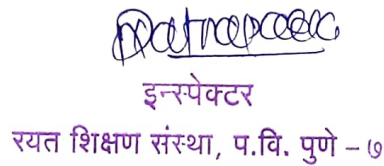 इन्स्पेक्टर
रयत शिक्षण संस्था, प.वि. पुणे - ७